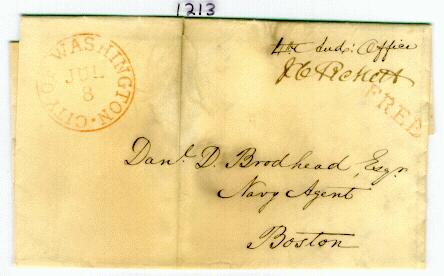 1213
CITY OF WASHINGTON
JUL
8
4th Aud: Office
J C Pickett
FREE
Danl. D. Brodhead, Esqr.
Navy Agent
Boston